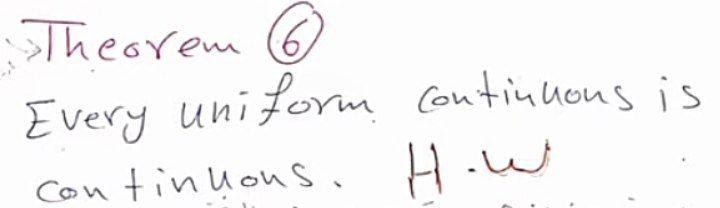 Theorem ⑥
Every uniform continuous is
continuous. H.W